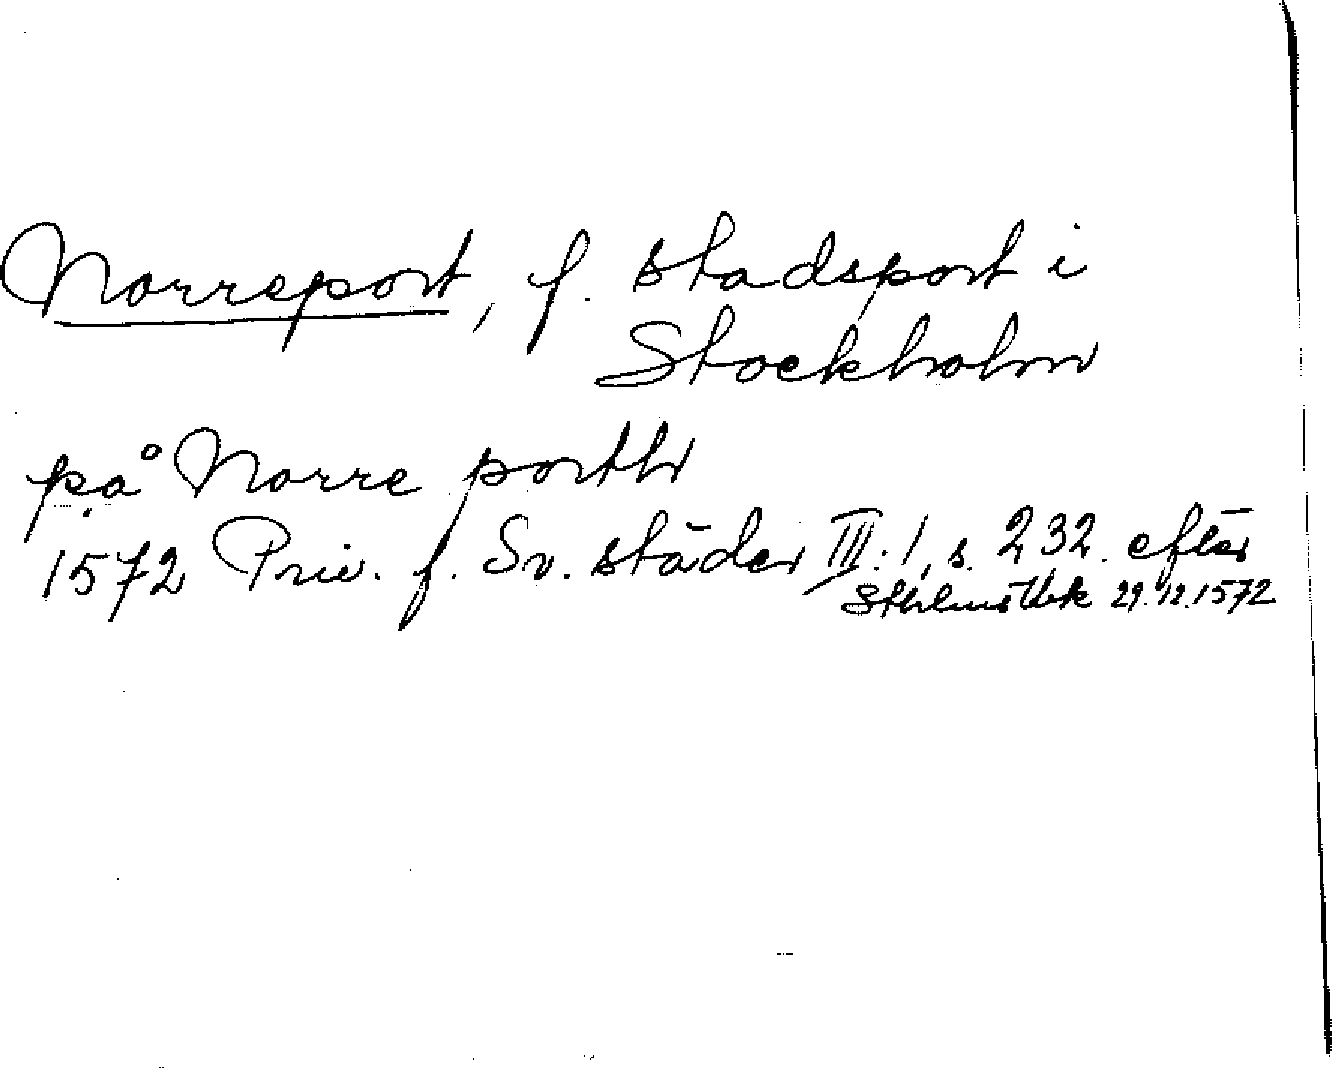 Norreport, f. stadsport i
Stockholm
på Norre porth
1572 Priv. f. Sv. städer III:1, s. 232. efter
Sthlms tbk 29.12.1572